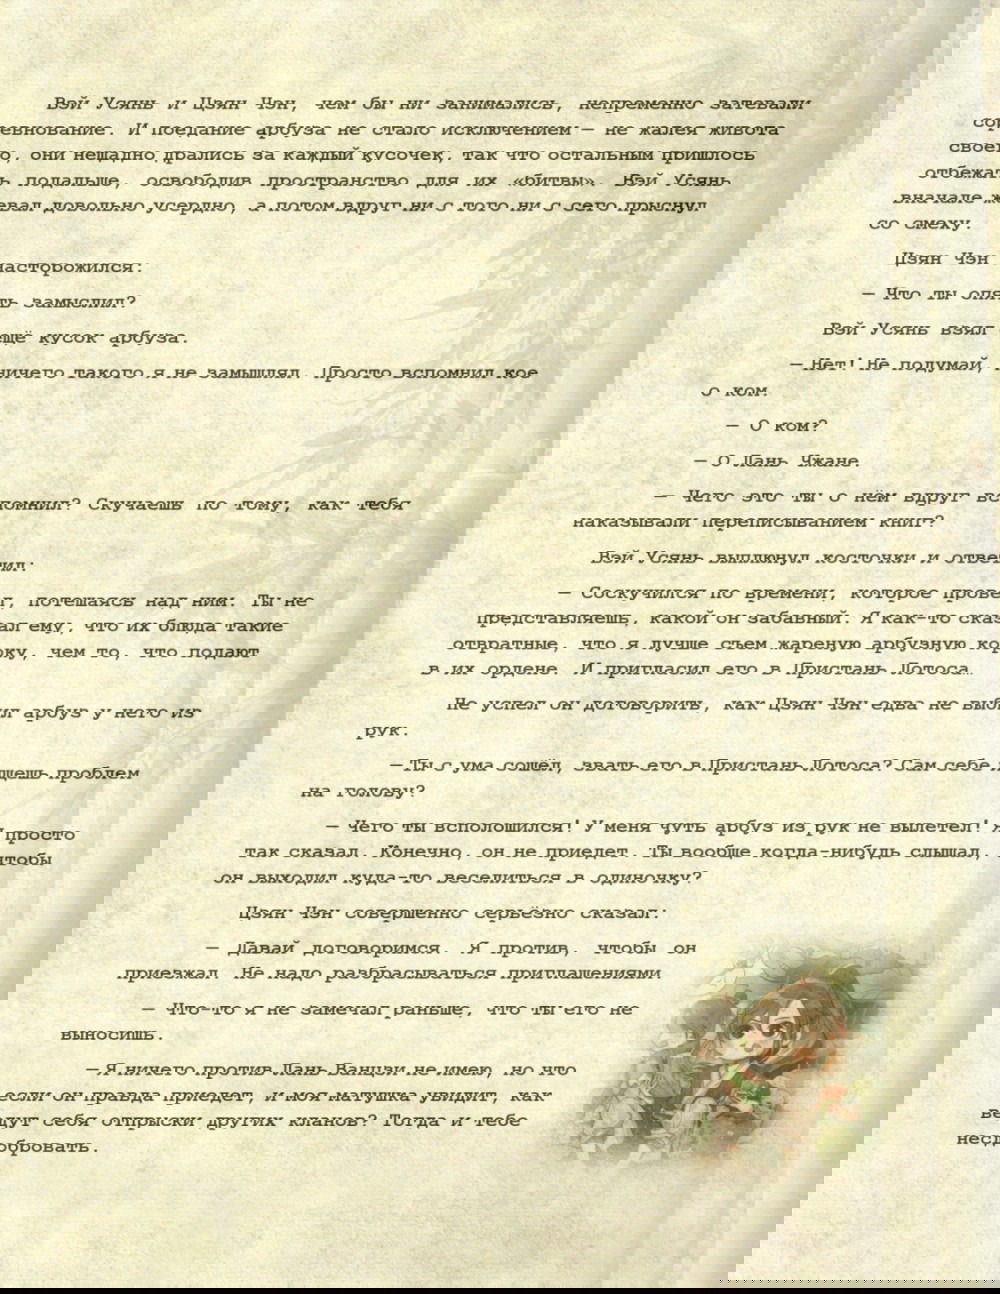 Вэй Усянь и Цзян Чэн, чем бы ни занимались, непременно затевали
соревнование. И поедание арбуза не стало исключением — не жалея живота
своего, они нещадно дрались за каждый кусочек, так что остальным пришлось
отбежать подальше, освободив пространство для их «битвы». Вэй Усянь
вначале жевал довольно усердно, а потом вдруг ни с того ни с сего прыснул
со смеху.
Цзян Чэн насторожился:
— Что ты опять замыслил?
Вэй Усянь взял ещё кусок арбуза.
— Нет! Не подумай, ничего такого я не замышлял. Просто вспомнил кое
о ком.
— О ком?
— О Лань Чжане.
— Чего это ты о нём вдруг вспомнил? Скучаешь по тому, как тебя
наказывали переписыванием книг?
Вэй Усянь выплюнул косточки и ответил:
— Соскучился по времени, которое провел, потешаясь над ним. Ты не
представляешь, какой он забавный. Я как-то сказал ему, что их блюда такие
отвратные, что я лучше съем жареную арбузную корку, чем то, что подают
в их ордене. И пригласил его в Пристань Лотоса…
Не успел он договорить, как Цзян Чэн едва не выбил арбуз у него из
рук.
— Ты с ума сошёл, звать его в Пристань Лотоса? Сам себе ищешь проблем
на голову?
— Чего ты всполошился! У меня чуть арбуз из рук не вылетел! Я просто
так сказал. Конечно, он не приедет. Ты вообще когда-нибудь слышал, чтобы
он выходил куда-то веселиться в одиночку?
Цзян Чэн совершенно серьёзно сказал:
— Давай договоримся. Я против, чтобы он
приезжал. Не надо разбрасываться приглашениями.
— Что-то я не замечал раньше, что ты его не
выносишь.
— Я ничего против Лань Ванцзи не имею, но что
если он правда приедет, и моя матушка увидит, как
ведут себя отпрыски других кланов? Тогда и тебе
несдобровать.